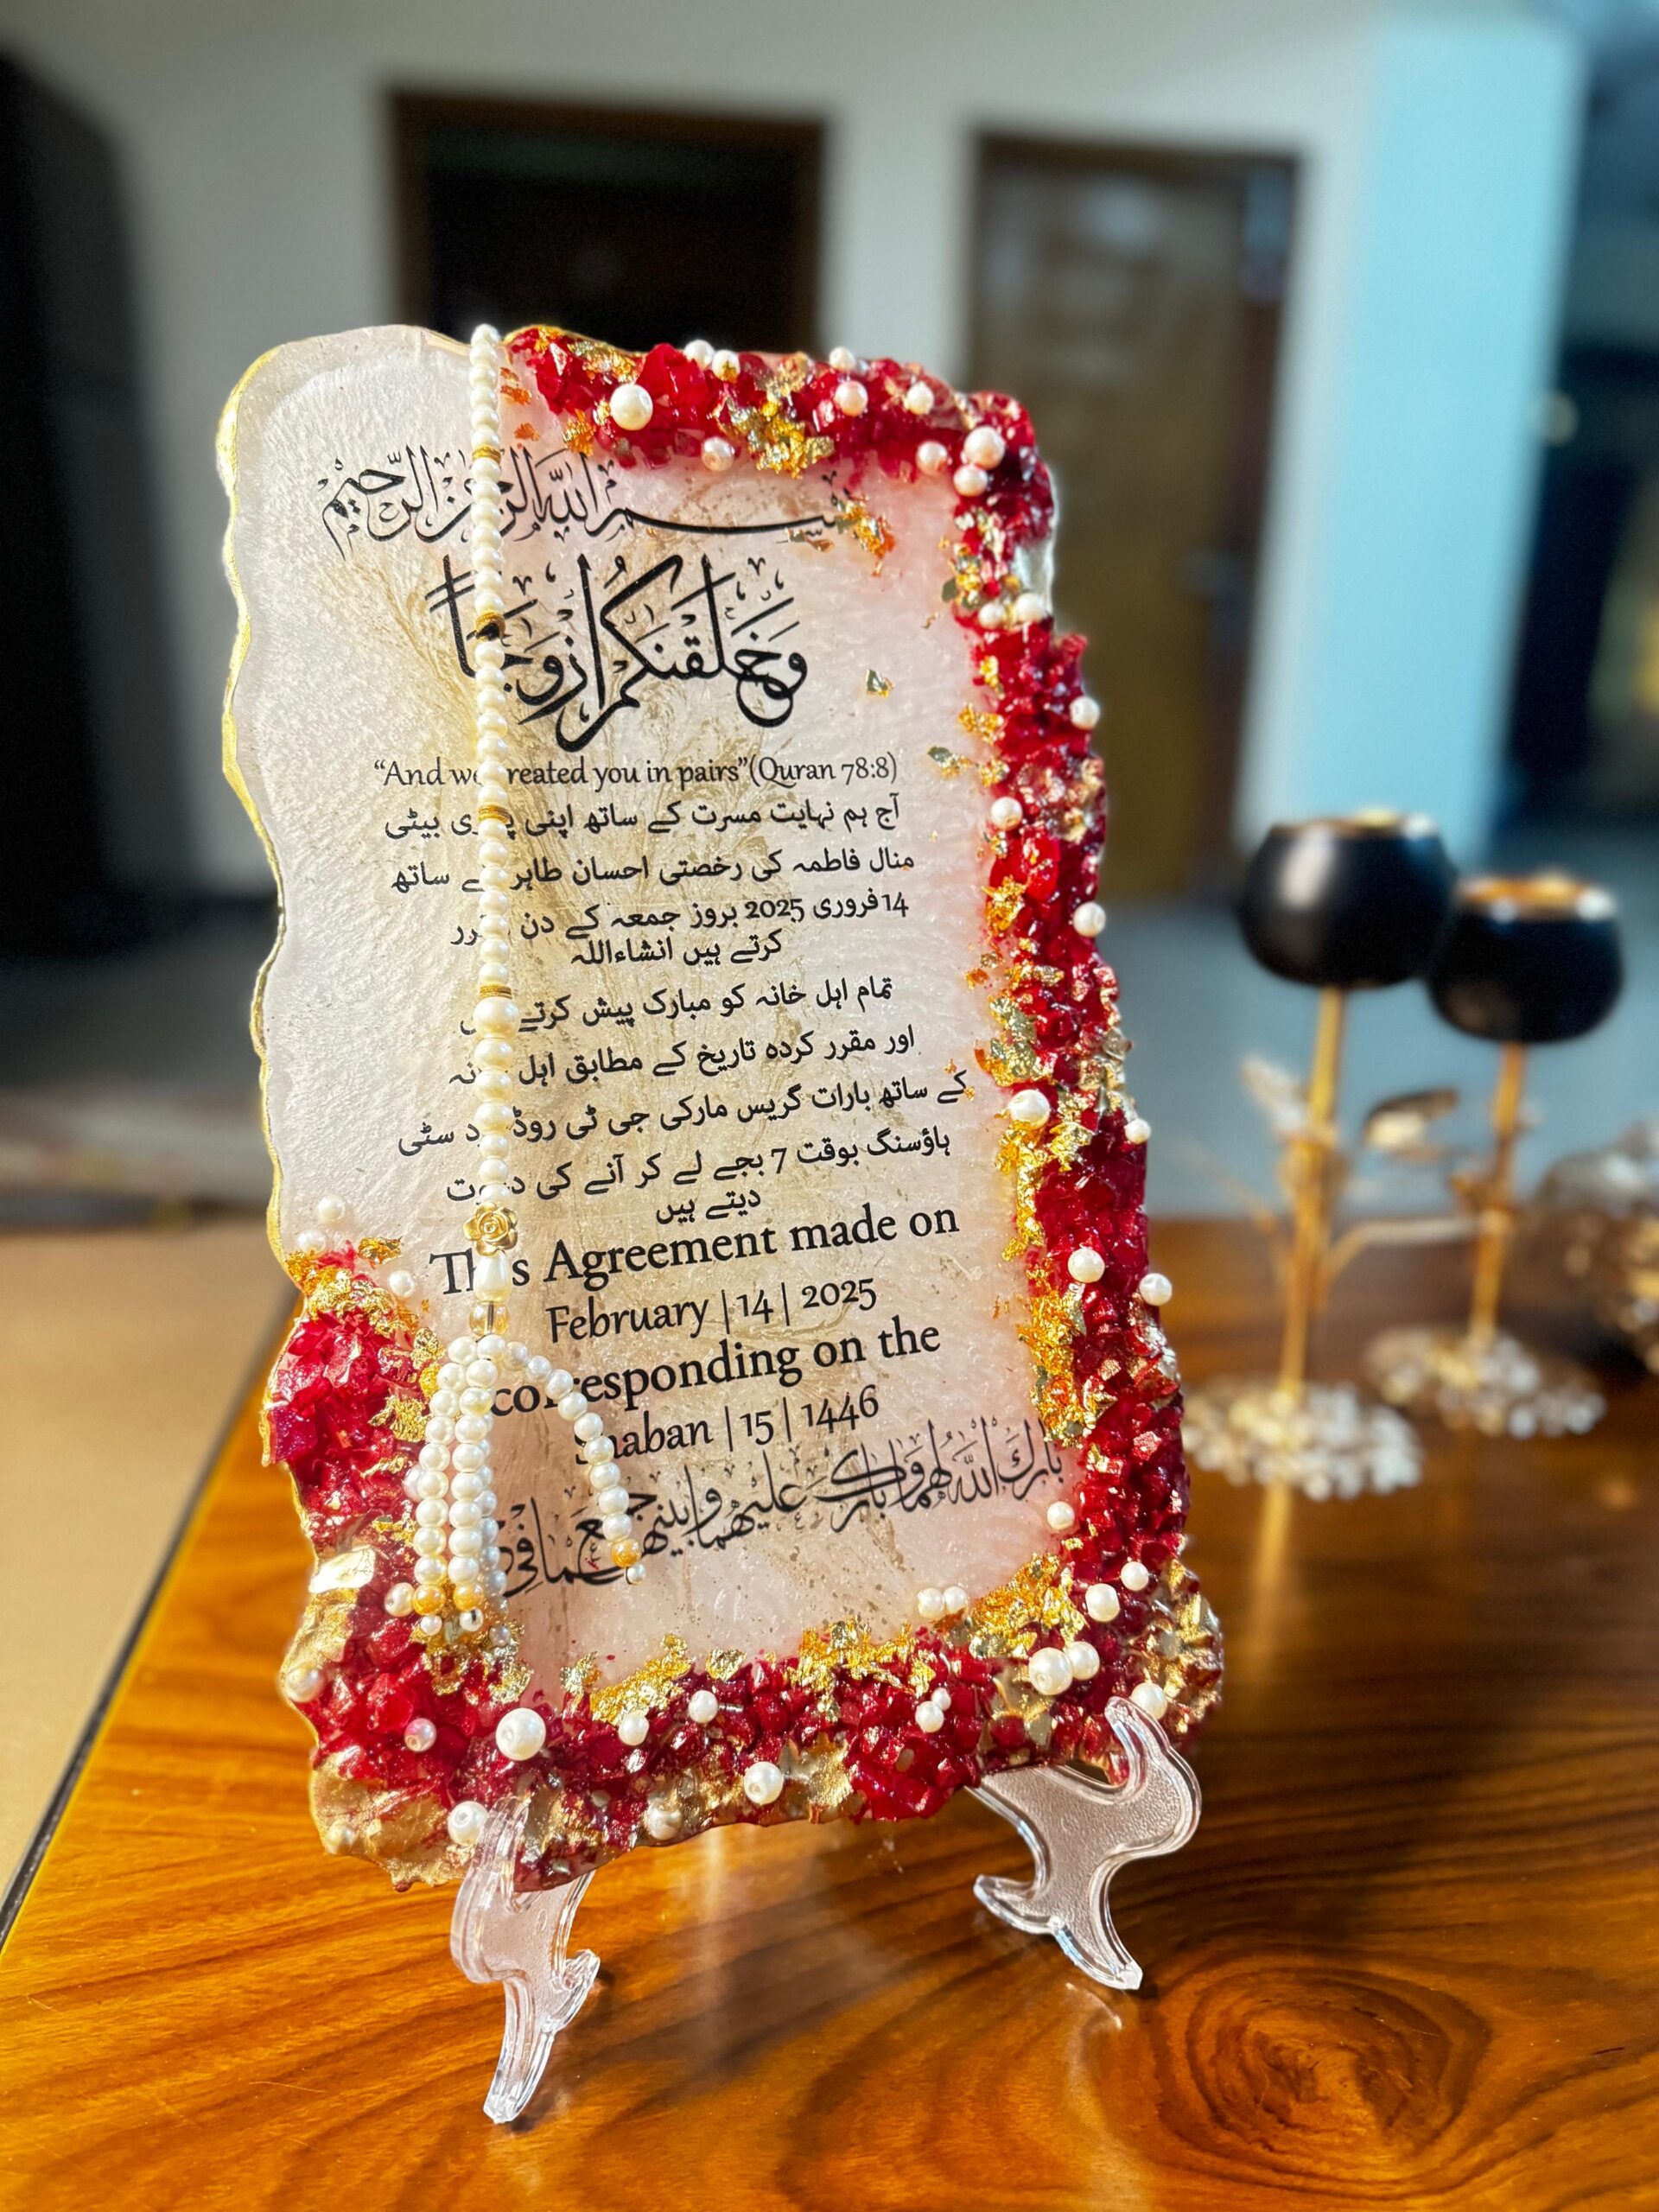 بسم الله الرحمن الرحيم
وَخَلَقْنَكُمْ أَزْوَجًا
“And we created you in pairs”(Quran 78:8)
آج ہم نہایت مسرت کے ساتھ اپنی پیاری بیٹی
منال فاطمہ کی رخصتی احسان طاہر کے ساتھ
14فروری 2025 بروز جمعہ کے دن مقرر
کرتے ہیں انشاءاللہ
تمام اہل خانہ کو مبارک پیش کرتے ہیں
اور مقرر کردہ تاریخ کے مطابق اہل خانہ
کے ساتھ بارات گریس مارکی جی ٹی روڈ سٹی
ہاؤسنگ بوقت 7 بجے لے کر آنے کی دعوت
دیتے ہیں
This Agreement made on
February | 14 | 2025
corresponding on the
Shaban | 15 | 1446
بارك الله لهما وبارك عليهما وجمع بينهما في